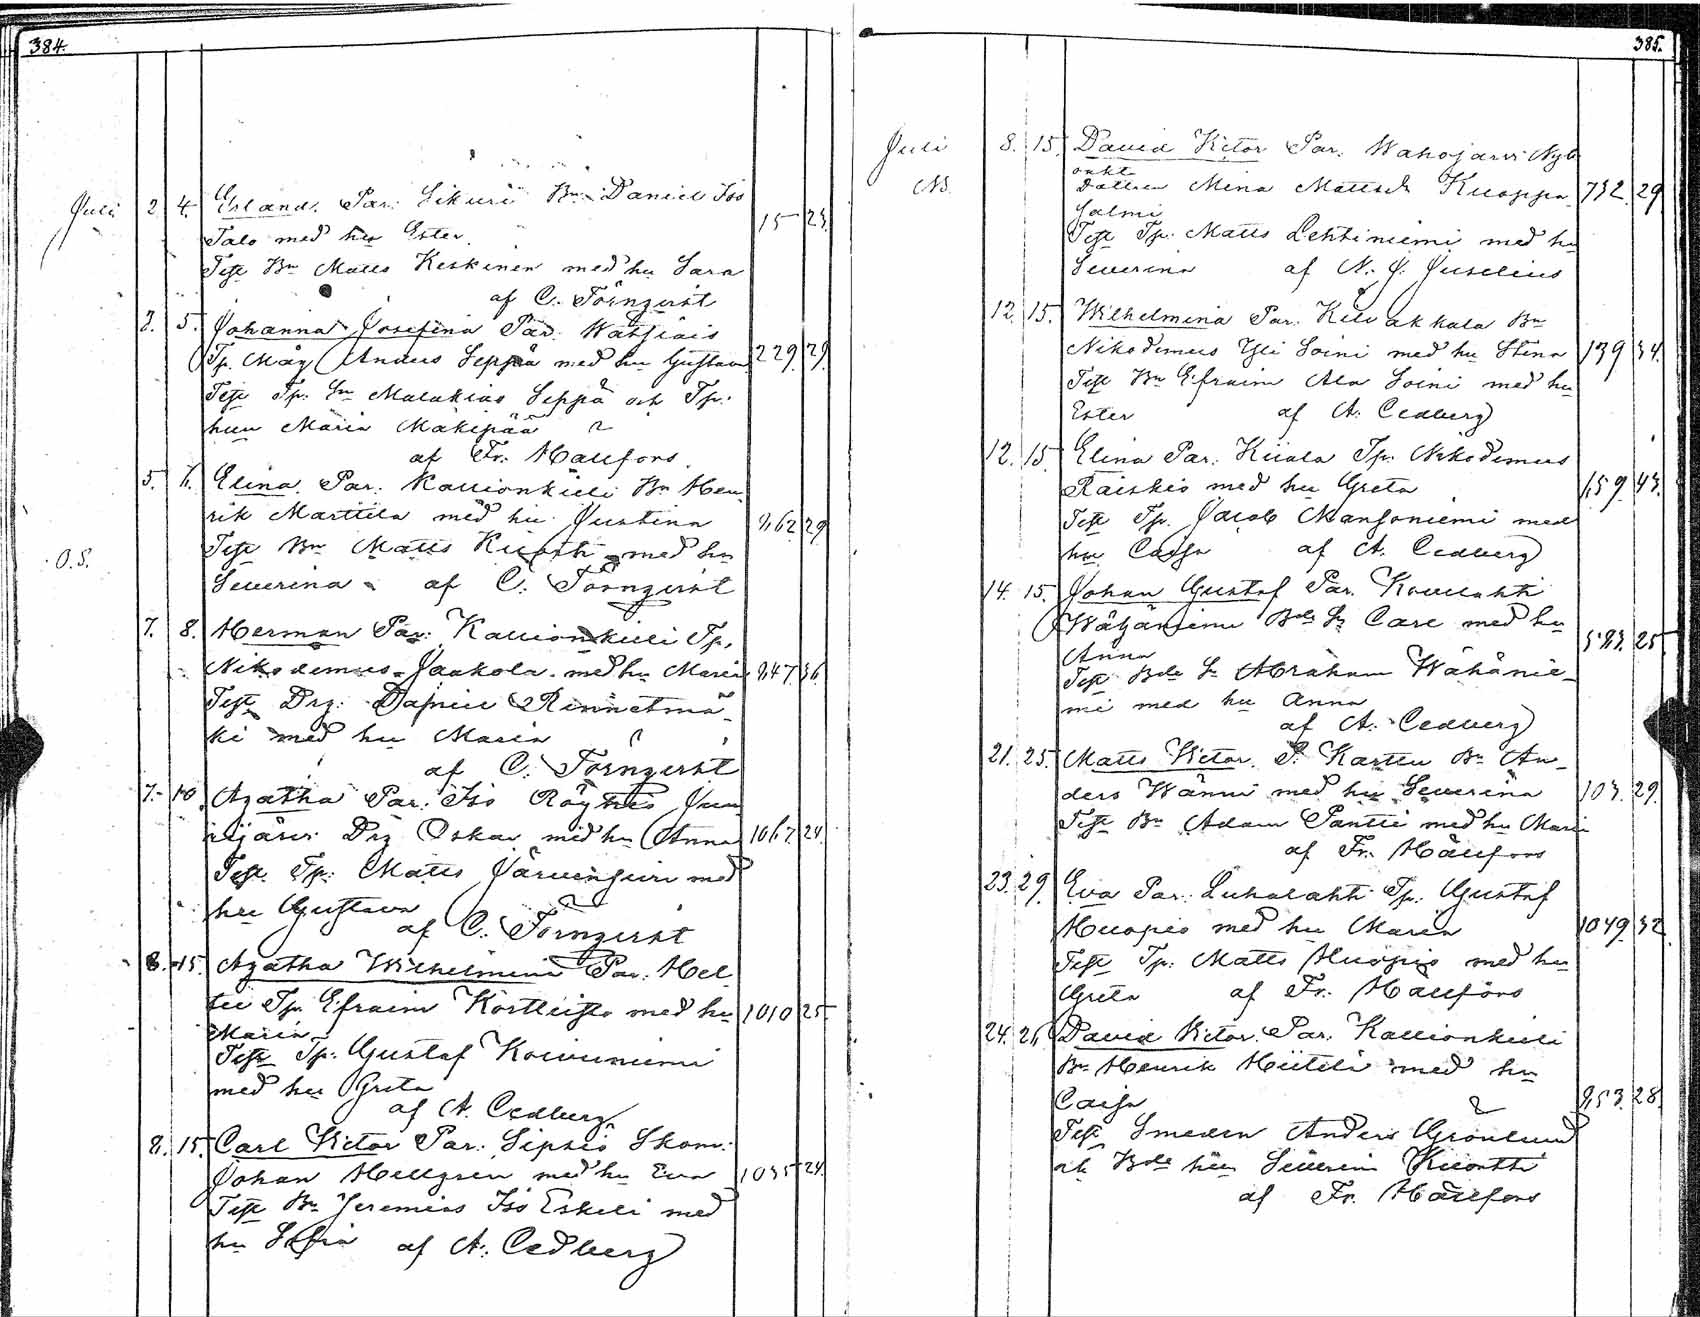 384.
Juli 2. 4. Erland. Par: Sikuri Bn Daniel Iso
Talo med hu Ester. 15 23.
Test Bn Matts Keskinen med hu Sara
af C. Törnqvist
3. 5. Johanna Josefina Par.
Tp. Måg Anders Seppä med hu Gustava 229. 29.
Test Tp. Sn Malakias Seppä och Tp:
hun Maria Mäkipää
af Fr. Hällfors.
5. 6. Elina. Par. Kallionkieli Bn Hen-
rik Marttila med hu Justina 962 29
O.S. Test Bn Matts Kuortti med hu
Severina af C. Törnqvist
7. 8. Herman Par: Kallionkieli Tp.
Nikodemus Jaakola med hu Maria 947. 36.
Test Drg. Daniel Rinnetmä-
ki med hu Maria
af C. Törnqvist
7. 10. Agatha Par. Iso Röyhiö
Drg Oskar med hu Anna 1067 24.
Test Tp: Matts med
hu Gustava
af C. Törnqvist
8. 15. Agatha Wilhelmina Par. Hel-
Tp. Efraim med hu 1010 25
Maria
Test Tp: Gustaf Koivuniemi
med hu Greta
af A. Cedberg
8. 15. Carl Victor Par. Sipsiö Skom.
Johan Hellgren med hu Eva 1035 24.
Test Bn Jeremias Iso Eskeli med
hu Sofia af A. Cedberg
385.
Juli 8. 15. David Victor Par. Wahojärvi Nyb
N.S. oäkta
dottren Mina Mattsdr Kuoppa- 732. 29
salmi
Test Tp. Matts Lehtiniemi med hu
Severina af N. J. Juselius
12. 15. Wilhelmina Par. Kilvakkala Bn
Nikodemus Yli Soini med hu Stina 139 34.
Test Bn Efraim Ala Soini med hu
Ester af A. Cedberg
12. 15 Elina Par. Kiiala Tp. Nikodemus
Raiskio med hu Greta 43.
Test Tp. Jacob Mansoniemi med
hu Caisa af A. Cedberg
14. 15. Johan Gustaf Par. Kovelahti
Wähäniemi Bde Sn Carl med hu
Anna 25
Test Bde Sn Abraham Wähänie-
mi med hu Anna
af A. Cedberg
21. 25. Matts Victor. P. Karttu Bn An-
ders Wänni med hu Severina 103. 29.
Test Bn Adam Pantti med hu Maria
af Fr. Hällfors
23. 29. Eva Par. Luhalahti Tp. Gustaf
Huopio med hu Maria 1049. 32
Test Tp. Matts Huopio med hu
Greta af Fr. Hällfors
24. 26. David Victor. Par. Kallionkieli
Bn Henrik Hiiteli med hu
Caisa 953. 28.
Test Smeden Anders Grönlund
och Bde hun Severina Kuortti
af Fr. Hällfors